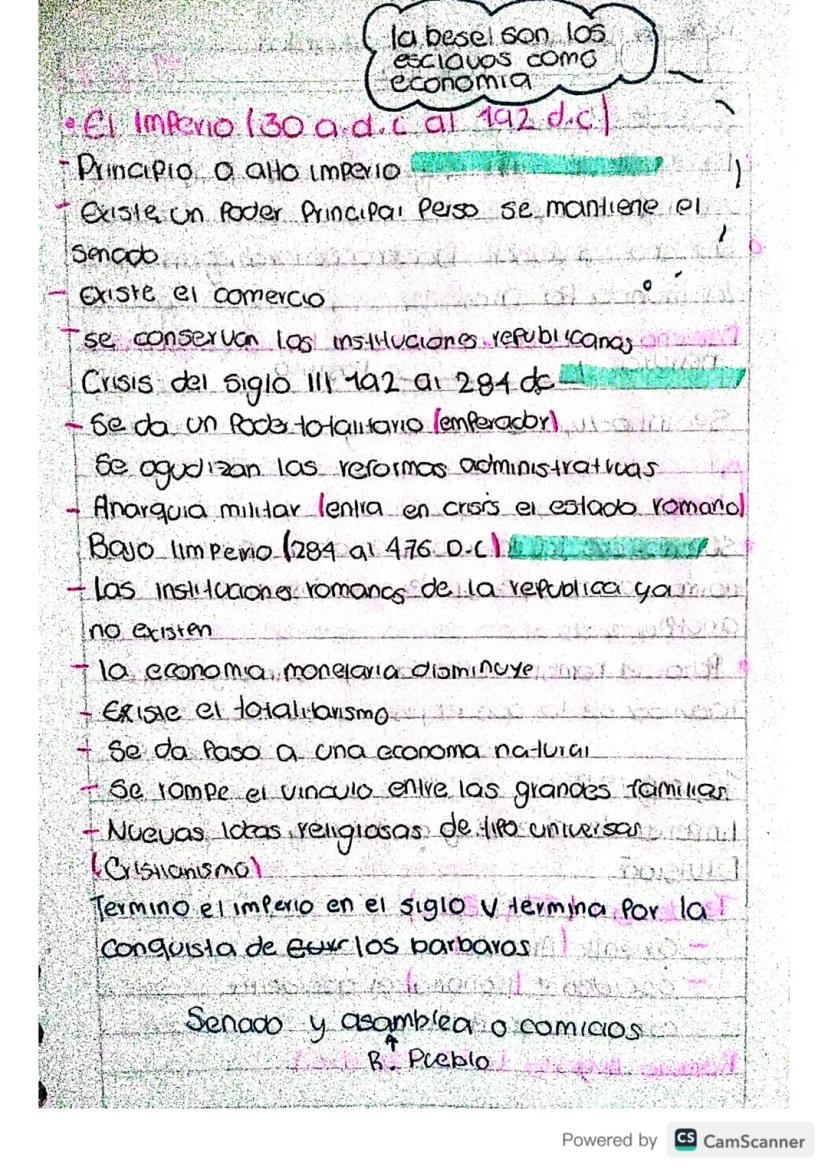 la besel son los
esclavos como
economia
• El Imperio (30 a.d.c al 192 d.c)
- Principio o alto imperio
- existe un Poder Principal Perso se mantiene el
senado
- existe el comercio
- se conservan las instituciones republicanas
Crisis del siglo III 192 al 284 dc
- Se da un Poder totalitario (emperador)
se agudizan las reformas administrativas
- Anarquia militar (entra en crisis el estado romano)
Bajo Iimperio (284 al 476 D.C)
- Las instituciones romanas de la republica ya
no existen
- la economia monetaria disminuye
- Existe el totalitarismo
- Se da Paso a una economa natural
- Se rompe el vinculo entre las grandes familias
- Nuevas Ideas religiosas de tipo universas
(Cristianismo)
Termino el imperio en el siglo V termina por la
conquista de los barbaros
Senado y asamblea o comicios
R. Pueblo
Powered by CS CamScanner